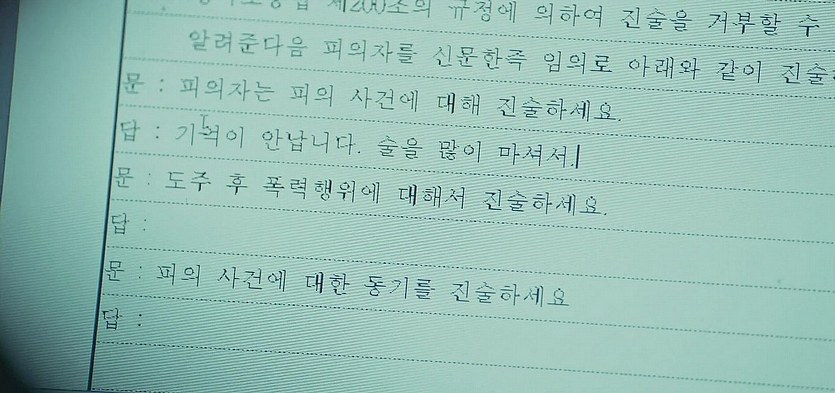 제200조의 규정에 의하여 진술을 거부할 수
알려준다음 피의자를 신문한즉 임의로 아래와 같이 진술
문 : 피의자는 피의 사건에 대해 진술하세요.
답 : 기억이 안납니다. 술을 많이 마셔서.
문 : 도주 후 폭력행위에 대해서 진술하세요.
답 :
문 : 피의 사건에 대한 동기를 진술하세요
답 :